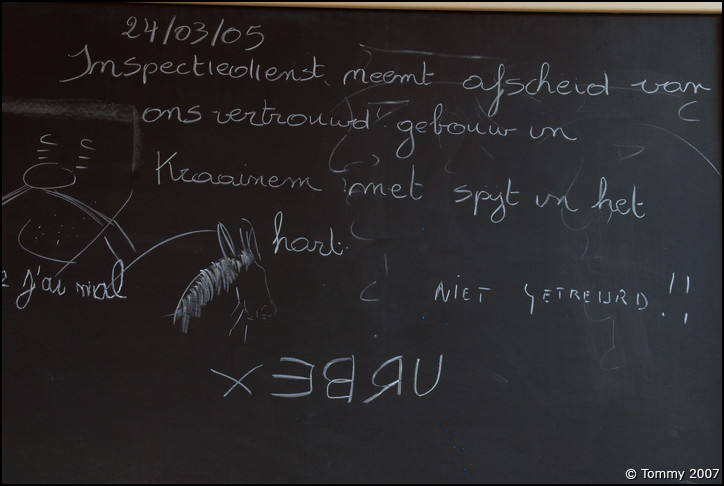 24/03/05
Inspectiedienst neemt afscheid van
ons vertrouwd gebouw in
Kraainem met spijt in het
hart.
j'ai mal
NIET GETREURD!!
URBEX
© Tommy 2007